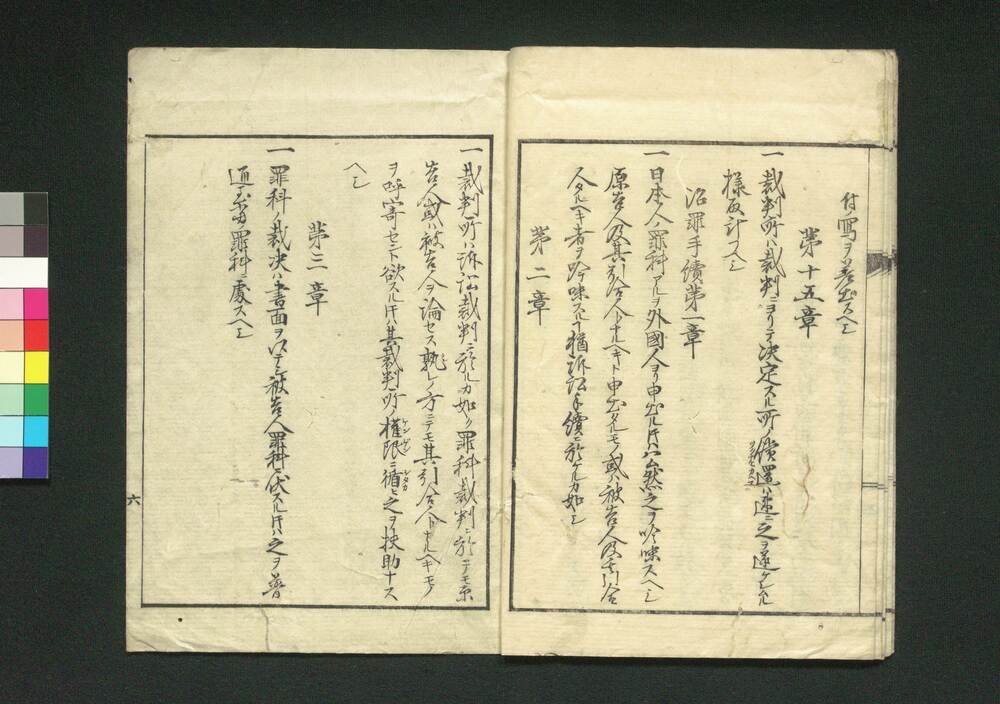 付ノ寫ヲ差出スヘシ
第十五章
一 裁判所ハ裁判ニヨリテ決定スル所ノ償還ヲ速ニ之ヲ遂ケシムル
様取計スヘシ
治罪手續第一章
一 日本人罪科アルヲ外國人ヨリ申出ル片ハ公然之ヲ吟味スヘシ
原告人及其引合人トナルヘキト申出タルモノ或ハ被告人及引合
人タルヘキ者ヲ吟味スルヿ猶訴訟手續ニ於ケルカ如シ
第二章
一 裁判所ハ訴訟裁判ニ於ルカ如ク罪科裁判ニ於テモ原
告人或ハ被告人ヲ論セス孰レノ方ニテモ其引合人トナルヘキモノ
ヲ呼寄セント欲スル片ハ其裁判所ノ權限ニ循ヒ之ヲ扶助ナス
ヘシ
第三章
一 罪科ノ裁決ハ書面ヲ以テシ被告人罪科ニ伏スル片ハ之ヲ普
通ノ罪科ニ處スヘシ
六